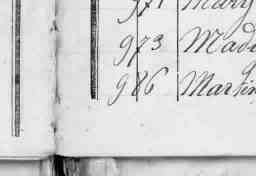 971 Mary
973 Made
986 Martin